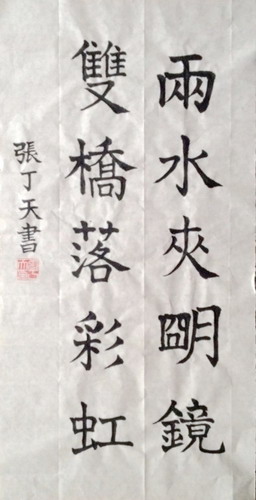 兩水夾明鏡
雙橋落彩虹
張丁天書